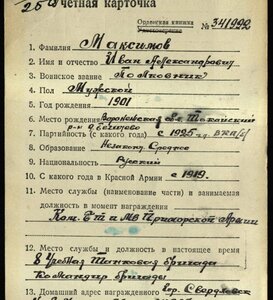 25
Учетная карточка
Орденская книжка
№ 341992
1. Фамилия Максимов
2. Имя и отчество Иван Александрович
3. Воинское звание Полковник
4. Пол Мужской
5. Год рождения 1901
6. Место рождения Воронежская обл
7. Партийность (с какого года) с 1925 г. ВКП/б/
8. Образование Незакон. Среднее
9. Национальность Русский
10. С какого года в Красной Армии с 1919.
11. Место службы (наименование части) и занимаемая
должность в момент награждения
Ком. БТ и МВ Приморской Армии
12. Место службы и должность в настоящее время
8 Танковая бригада
Командир бригады
13. Домашний адрес награжденного гор. Свердловск